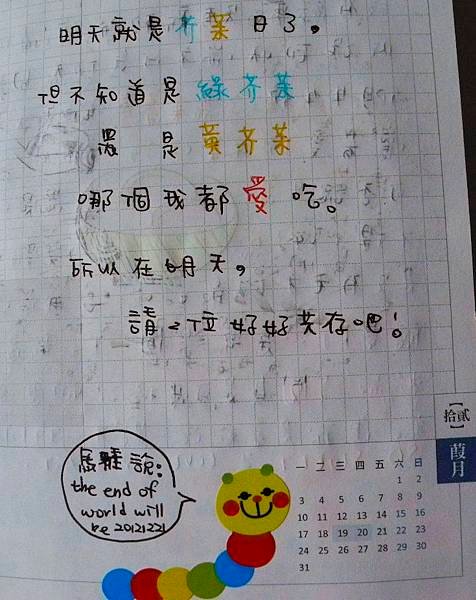 明天就是芥茉日了。
但不知道是綠芥茉
還是黃芥茉
哪個我都愛吃。
所以在明天,
請2位好好共存吧!
【拾貳】
葭月
馬雅說:
the end of
world will
be 20121221
一 二 三 四 五 六 日
1 2
3 4 5 6 7 8 9
10 11 12 13 14 15 16
17 18 19 20 21 22 23
24 25 26 27 28 29 30
31